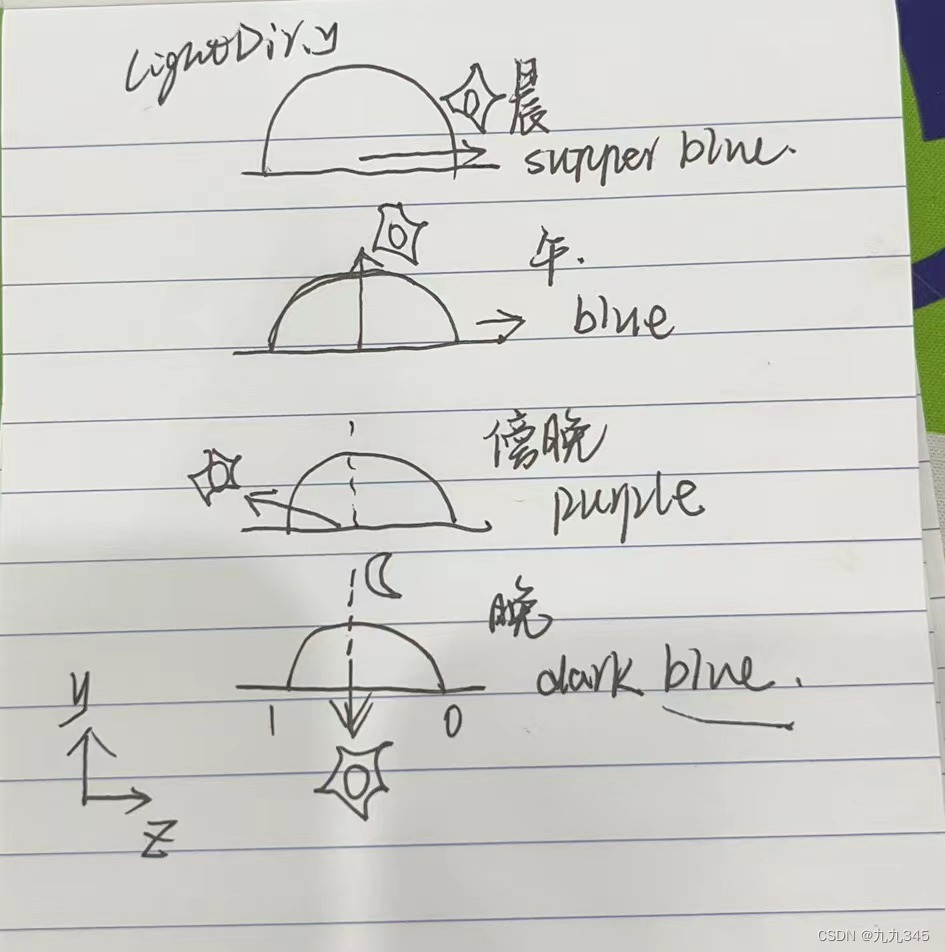 LightDir.y
晨
supper blue.
午.
blue
傍晚
purple
晚
dark blue.
1 0
y
z
CSDN @九九345